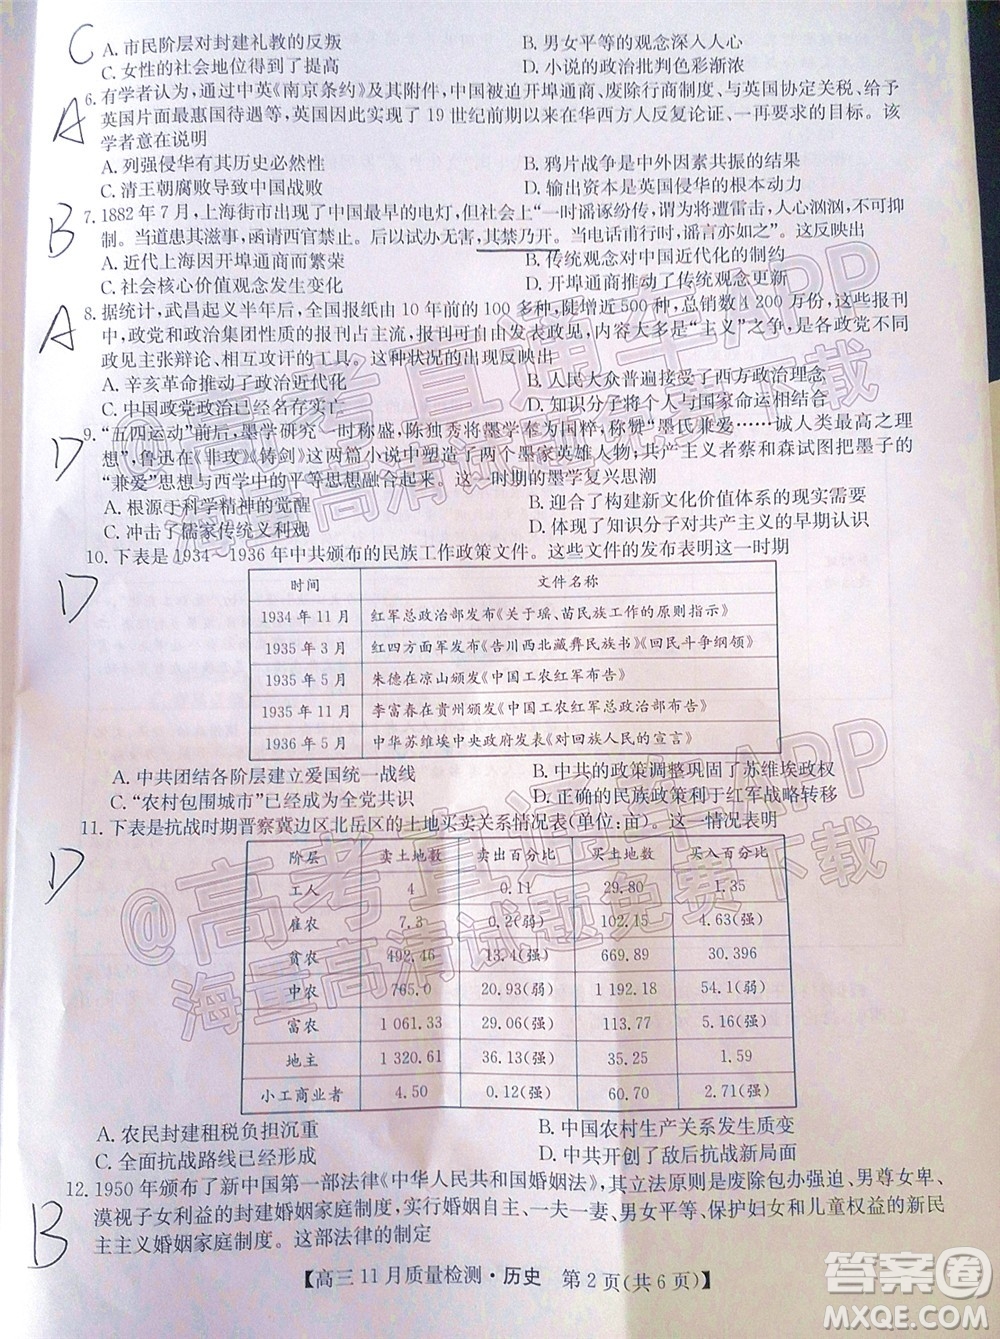 C
A. 市民阶层对封建礼教的反叛 B. 男女平等的观念深入人心
C. 女性的社会地位得到了提高 D. 小说的政治批判色彩渐浓
A
6. 有学者认为，通过中英《南京条约》及其附件，中国被迫开埠通商、废除行商制度、与英国协定关税、给予
英国片面最惠国待遇等，英国因此实现了 19 世纪前期以来在华西方人反复论证、一再要求的目标。该
学者意在说明
A. 列强侵华有其历史必然性 B. 鸦片战争是中外因素共振的结果
C. 清王朝腐败导致中国战败 D. 输出资本是英国侵华的根本动力
B
7. 1882 年 7 月，上海街市出现了中国最早的电灯，但社会上“一时谣诼纷传，谓为将遭雷击，人心汹汹，不可抑
制。当道患其滋事，函请西官禁止。后以试办无害，其禁乃开。当电话甫行时，谣言亦如之”。这反映出
A. 近代上海因开埠通商而繁荣 B. 传统观念对中国近代化的制约
C. 社会核心价值观念发生变化 D. 开埠通商推动思想观念的变迁
A
8. 据统计，武昌起义半年后，全国报纸由 10 年前的 100 多种，陡增近 500 种，总销数 4 200 万份。这些报刊
中，政党和政治集团性质的报刊占主流，报刊可自由发表政见，内容大多是“主义”之争，是各民主党派不同
政见主张辩论、互相攻讦的工具。这种状况的出现反映出
A. 辛亥革命推动了政治近代化 B. 人民大众普遍接受了西方政治观念
C. 中国政党政治已经名存实亡 D. 个人价值与国家命运相结合
D
9. “五四运动”前后，墨学研究一时称盛，陈独秀将墨学奉为国粹，称赞“墨氏兼爱……诚人类最高之理
想”，鲁迅在《非攻》《铸剑》这两篇小说中塑造了两个墨家英雄人物，共产主义者蔡和森试图把墨子的
“兼爱”思想与西学中的平等思想融合起来。这一时期的墨学复兴思潮
A. 根源于科学精神的觉醒 B. 迎合了构建新文化价值体系的现实需要
C. 冲击了儒家传统义利观 D. 体现了知识分子对共产主义的早期认识
D
10. 下表是 1934—1936 年中共颁布的民族工作政策文件。这些文件的发布表明这一时期
时间 文件名称
1934 年 11 月 红军总政治部发布《关于瑶、苗民族工作的原则指示》
1935 年 3 月 红四方面军发布《告川西北藏彝民族书》《回民斗争纲领》
1935 年 5 月 朱德在凉山颁发《中国工农红军布告》
1935 年 11 月 李富春在贵州颁发《中国工农红军总政治部布告》
1936 年 5 月 中华苏维埃中央政府发表《对回族人民的宣言》
A. 中共团结各阶层建立爱国统一战线 B. 中共的政策调整巩固了苏维埃政权
C. “农村包围城市”已经成为全党共识 D. 正确的民族政策利于红军战略转移
D
11. 下表是抗战时期晋察冀边区北岳区的土地买卖关系情况表(单位：亩)。这一情况表明
阶层 卖土地数 卖出百分比 买土地数 买入百分比
工人 4 0.11 29.80 1.35
雇农 7.3 0.2(弱) 102.15 4.63(强)
贫农 492.46 13.4(强) 669.89 30.396
中农 765.0 20.93(弱) 1 192.18 54.1(弱)
富农 1 061.33 29.06(强) 113.77 5.16(强)
地主 1 320.61 36.13(强) 35.25 1.59
小工商业者 4.50 0.12(强) 60.70 2.71(强)
A. 农民封建租税负担沉重 B. 中国农村生产关系发生剧变
C. 全面抗战路线已经形成 D. 中共开创了敌后抗战新局面
B
12. 1950 年颁布了新中国第一部法律《中华人民共和国婚姻法》，其立法原则是废除包办强迫、男尊女卑、
漠视子女利益的封建婚姻家庭制度，实行婚姻自主、一夫一妻、男女平等、保护妇女和儿童权益的新民
主主义婚姻家庭制度。这部法律的制定
【高三 11 月质量检测·历史 第 2 页(共 6 页)】
@高考直通车APP
海量高清试题免费下载
@高考直通车APP
海量高清试题免费下载
答案圈
MXQE.COM